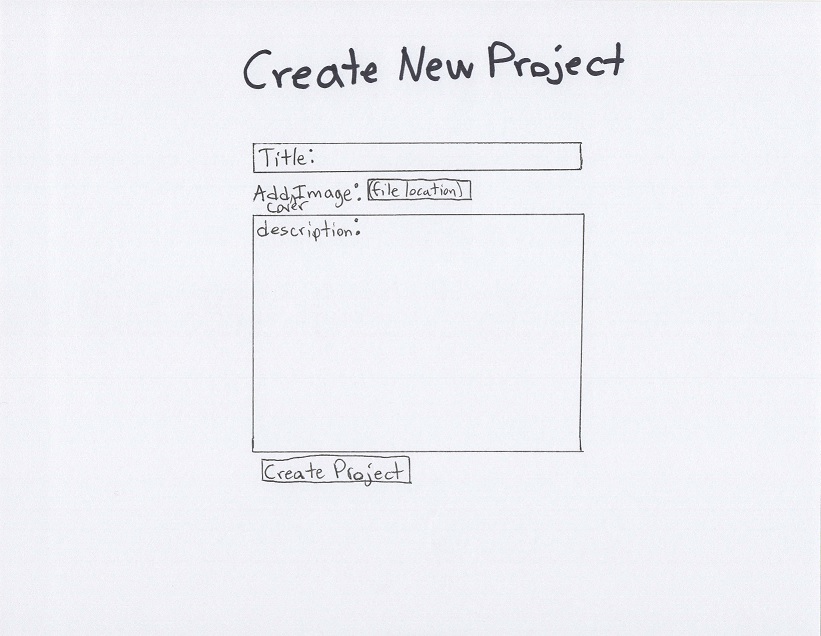 Create New Project
Title:
Add cover Image: (file location)
description:
Create Project